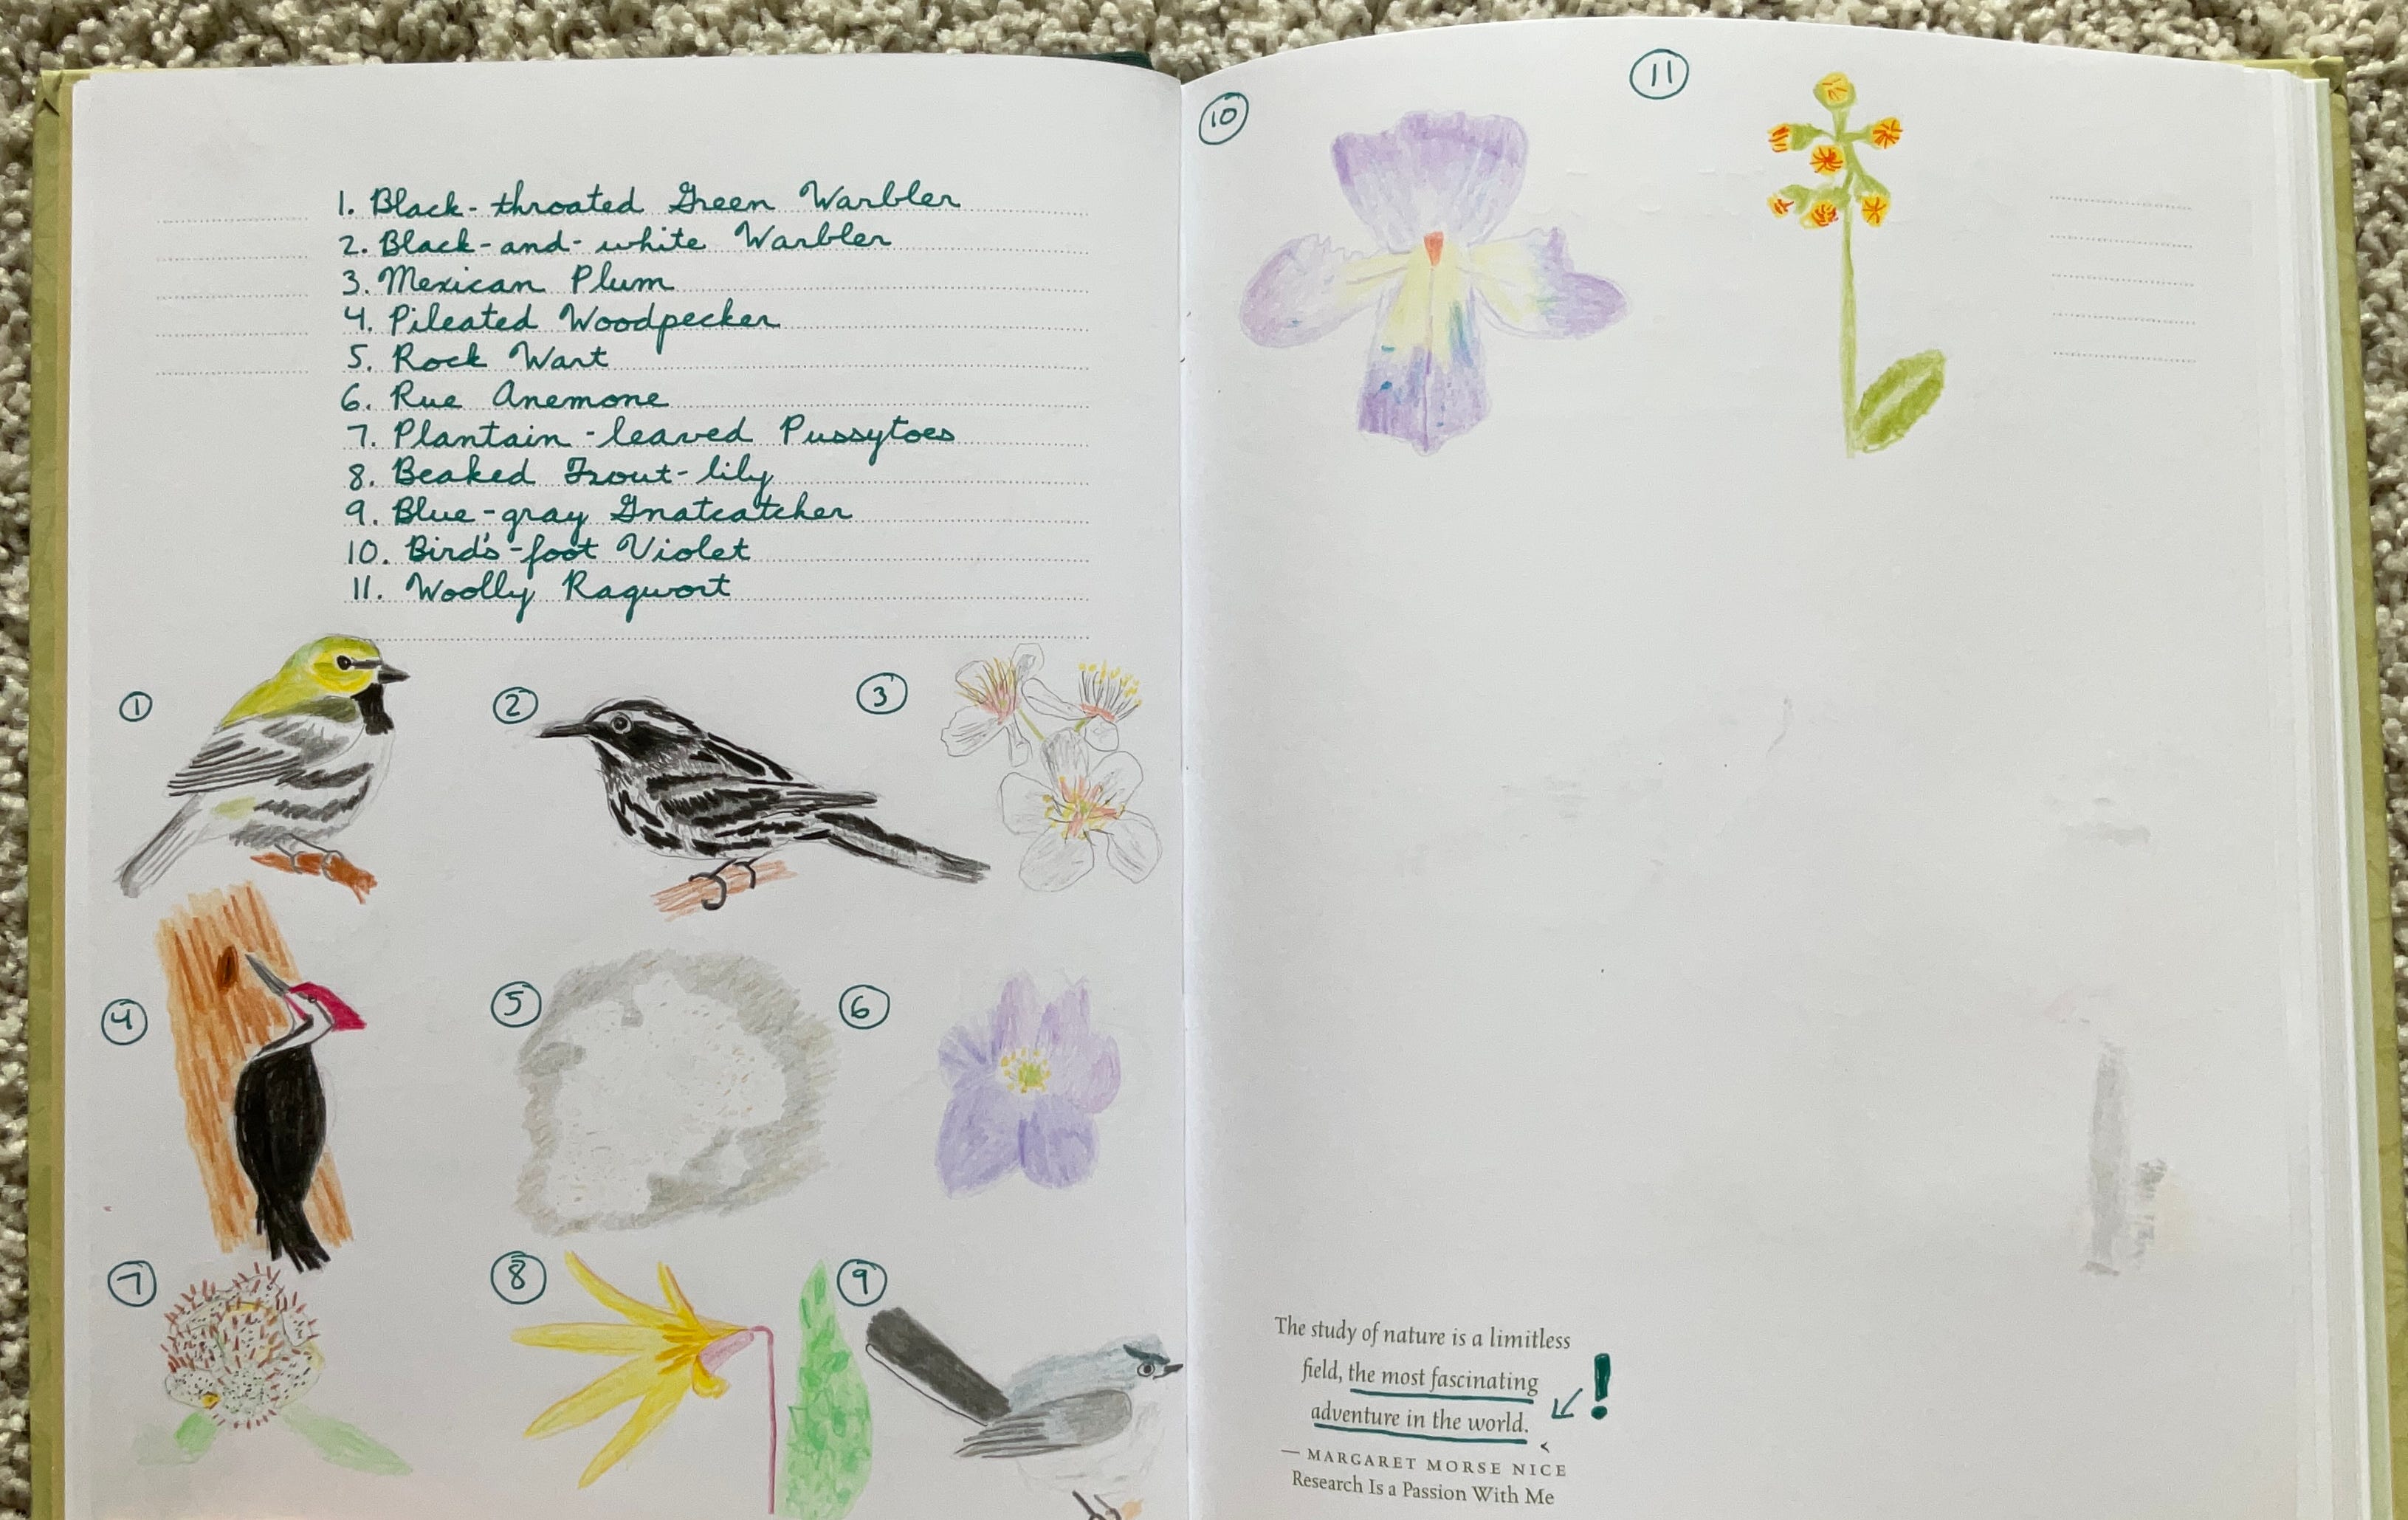 1. Black-throated Green Warbler
2. Black-and-white Warbler
3. Mexican Plum
4. Pileated Woodpecker
5. Rock Wart
6. Rue Anemone
7. Plantain-leaved Pussytoes
8. Beaked Trout-lily
9. Blue-gray Gnatcatcher
10. Bird's-foot Violet
11. Woolly Ragwort
1
2
3
4
5
6
7
8
9
10
11
The study of nature is a limitless
field, the most fascinating
adventure in the world.
!
— MARGARET MORSE NICE
Research Is a Passion With Me